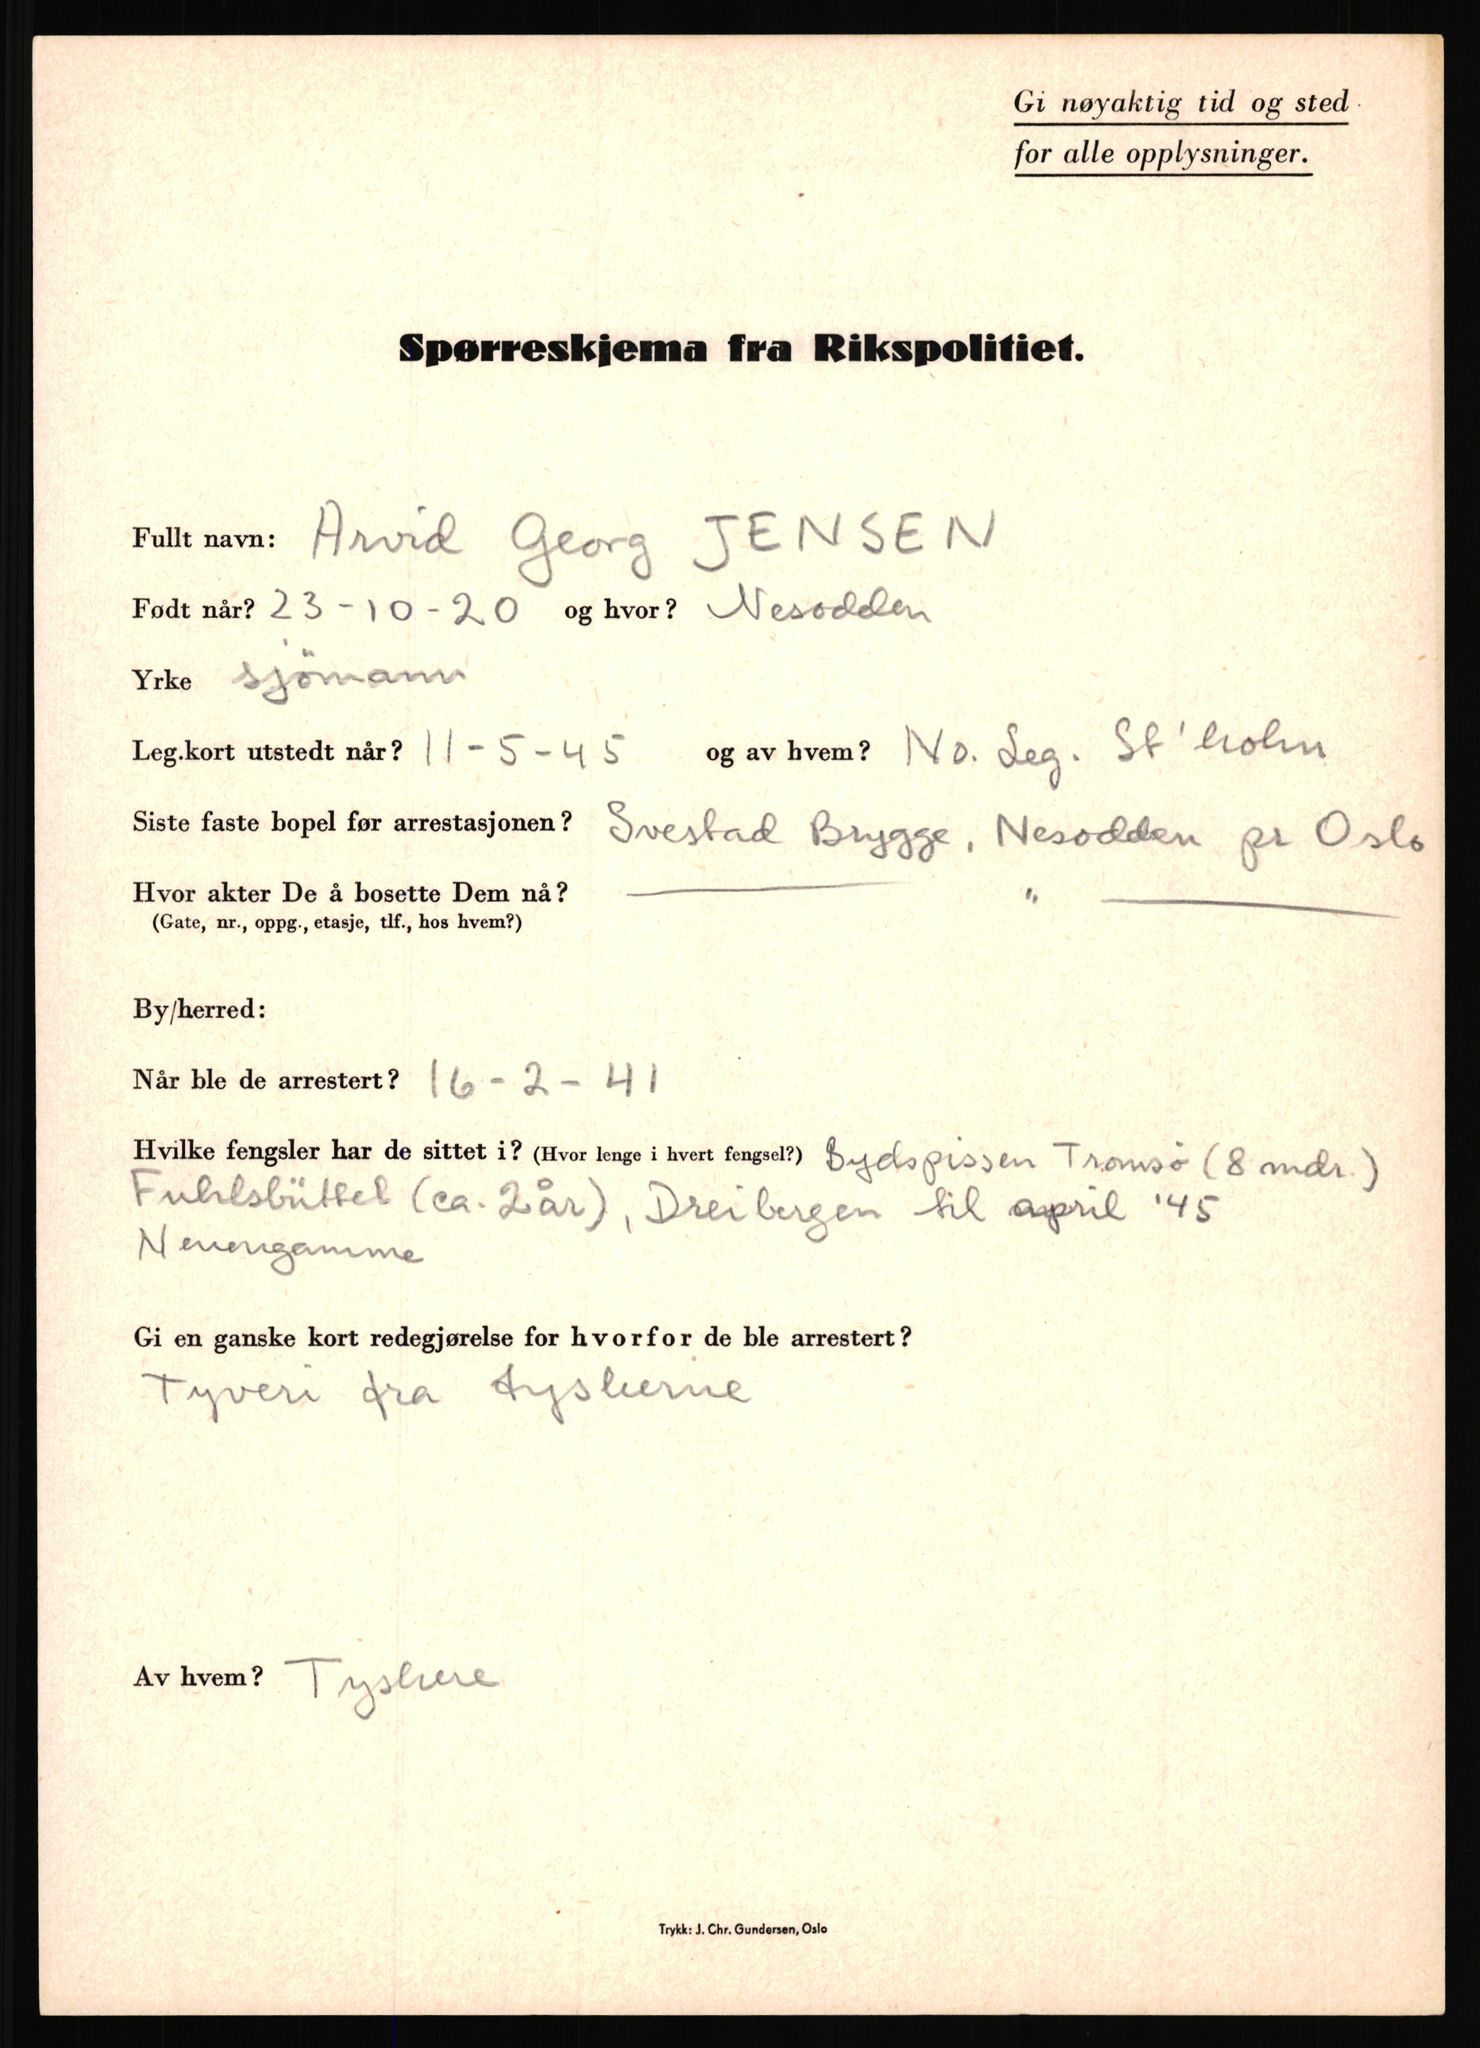 Gi nøyaktig tid og sted
for alle opplysninger.
Spørreskjema fra Rikspolitiet.
Fullt navn: Arvid Georg JENSEN
Født når? 23-10-20 og hvor? Nesodden
Yrke sjömann
Leg.kort utstedt når? 11-5-45 og av hvem? No. Leg. St'holm
Siste faste bopel før arrestasjonen? Svestad Brygge, Nesodden pr Oslo
Hvor akter De å bosette Dem nå? — " —
(Gate, nr., oppg., etasje, tlf., hos hvem?)
By/herred:
Når ble de arrestert? 16-2-41
Hvilke fengsler har de sittet i? (Hvor lenge i hvert fengsel?) Sydspissen Tromsö (8 mdr.)
Fuhlsbüttel (ca. 2 år), Dreibergen til april '45
Neuengamme
Gi en ganske kort redegjørelse for hvorfor de ble arrestert?
Tyveri fra tyskerne
Av hvem? Tyskere
Trykk: J. Chr. Gundersen, Oslo